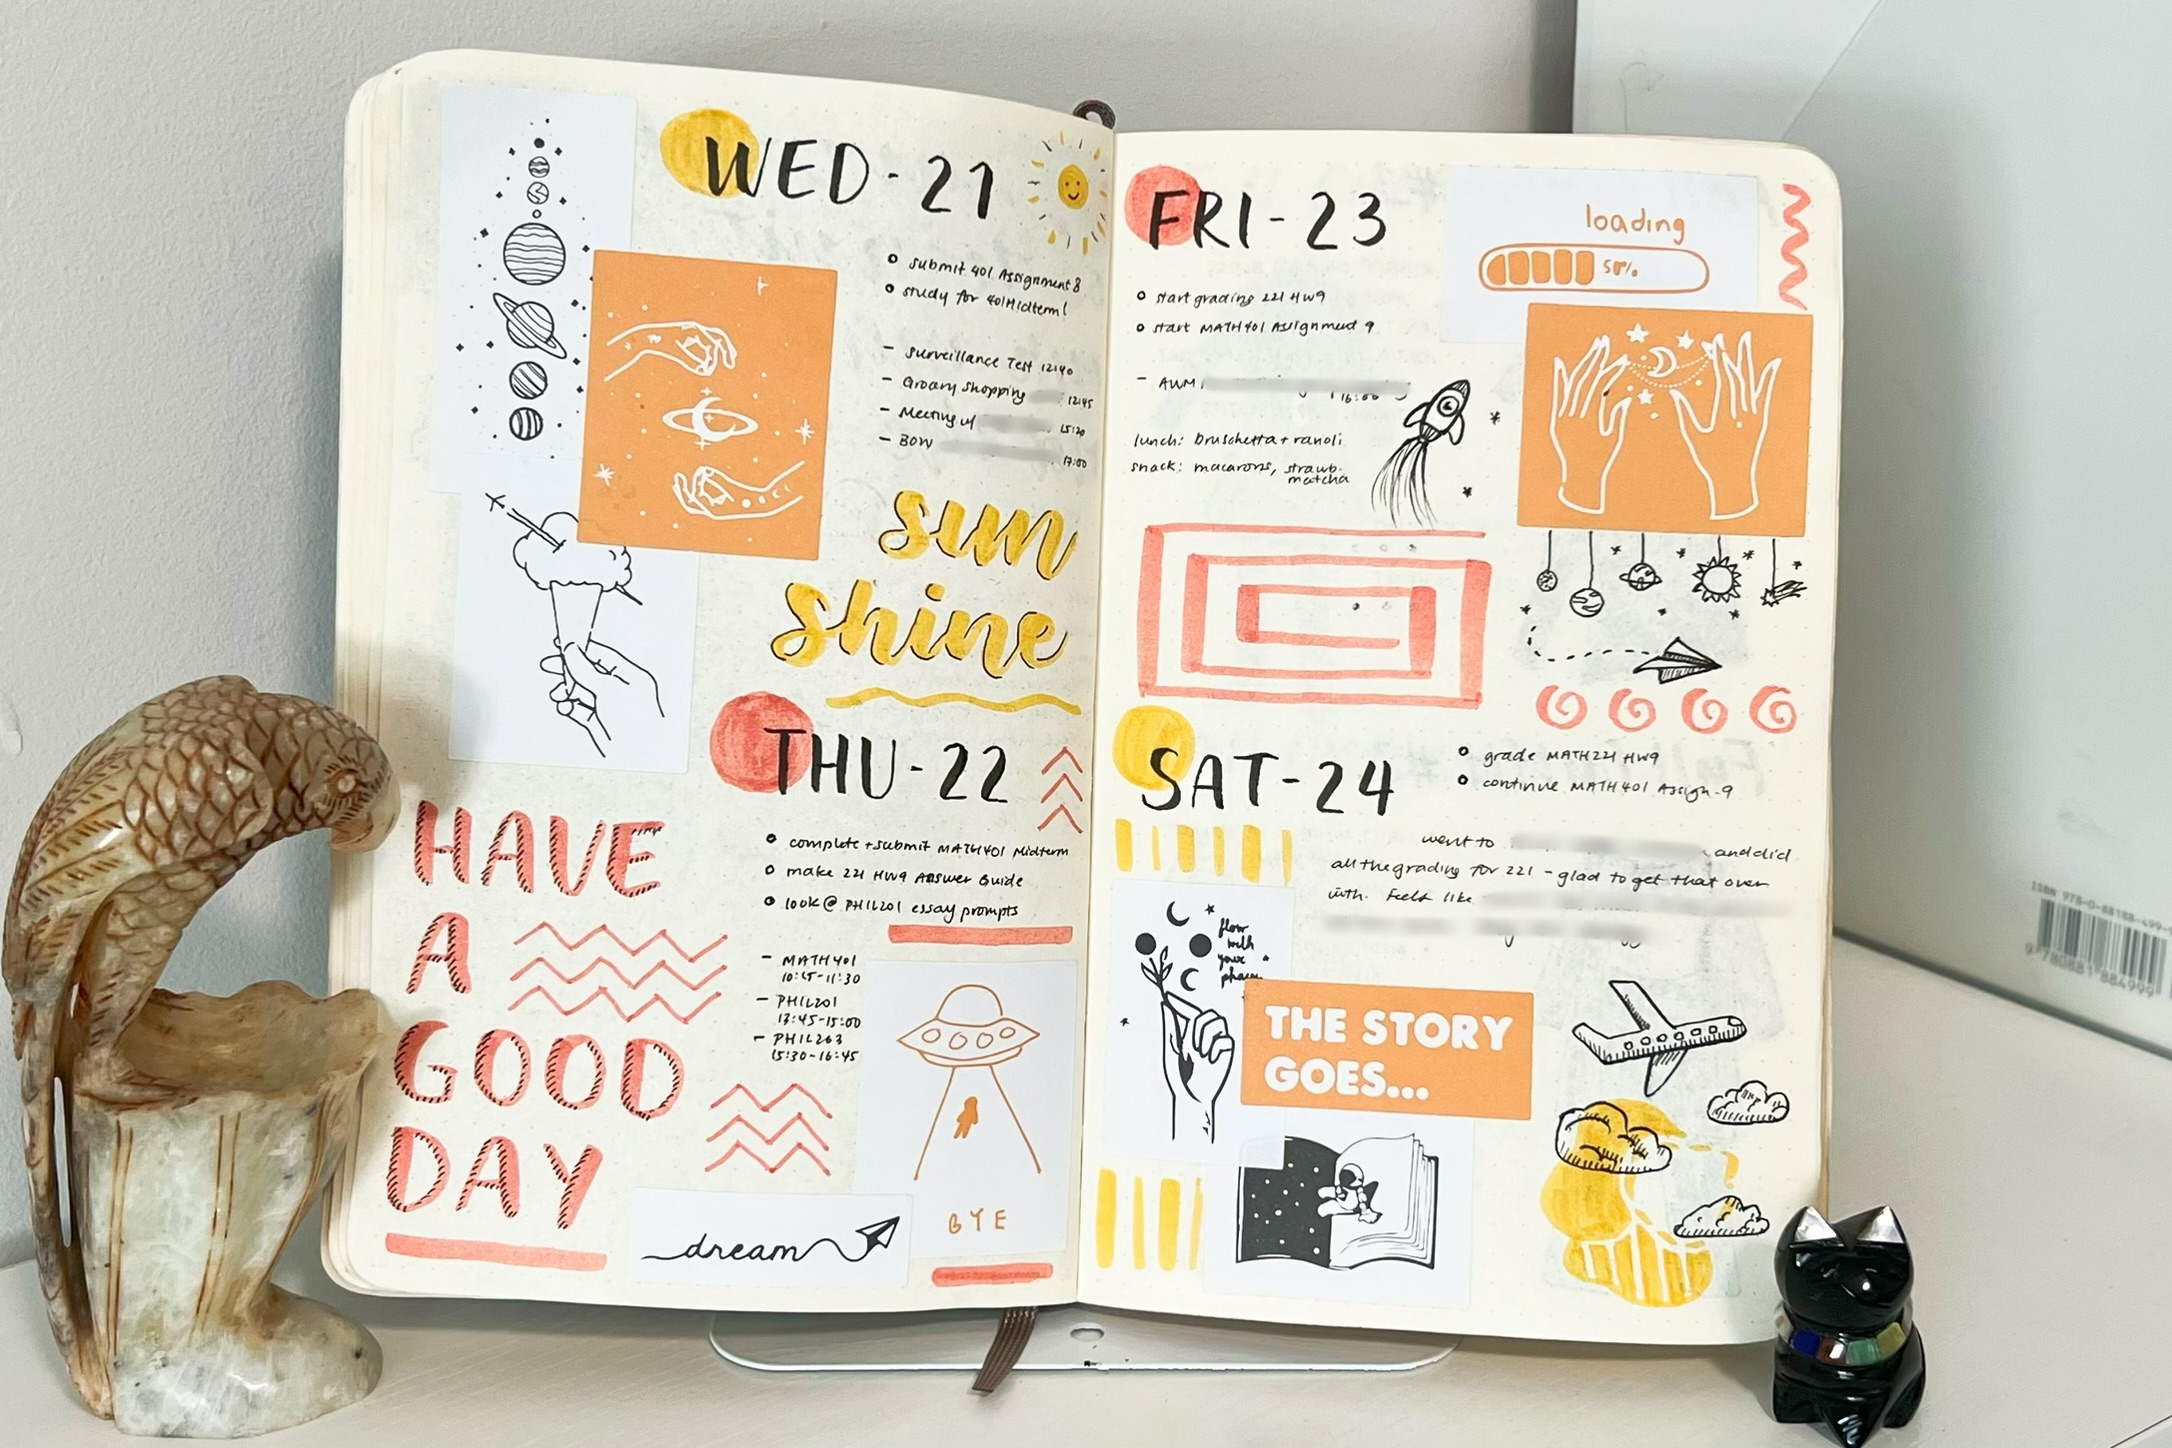 WED-21
submit 401 Assignment 8
study for 401 Midterm 1
- Surveillance Test 12:40
- Grocery shopping 12:45
- Meeting w/ 15:20
- BOW
17:00
sun
shine
THU-22
complete + submit MATH401 Midterm
make 221 HW9 Answer Guide
look @ PHIL201 essay prompts
- MATH401
10:15-11:30
- PHIL201
13:45-15:00
- PHIL263
15:30-16:45
HAVE
A
GOOD
DAY
dream
BYE
FRI-23
loading
50%
start grading 221 HW9
start MATH401 Assignment 9
- AWM
16:00
lunch: bruschetta + ravioli
snack: macarons, strawb.
matcha
SAT-24
grade MATH221 HW9
continue MATH401 Assign. 9
went to and did
all the grading for 221 - glad to get that over
with. Feels like
flow
with
your
phases
THE STORY
GOES...
ISBN 978-0-88188-499-
9 780881 884999